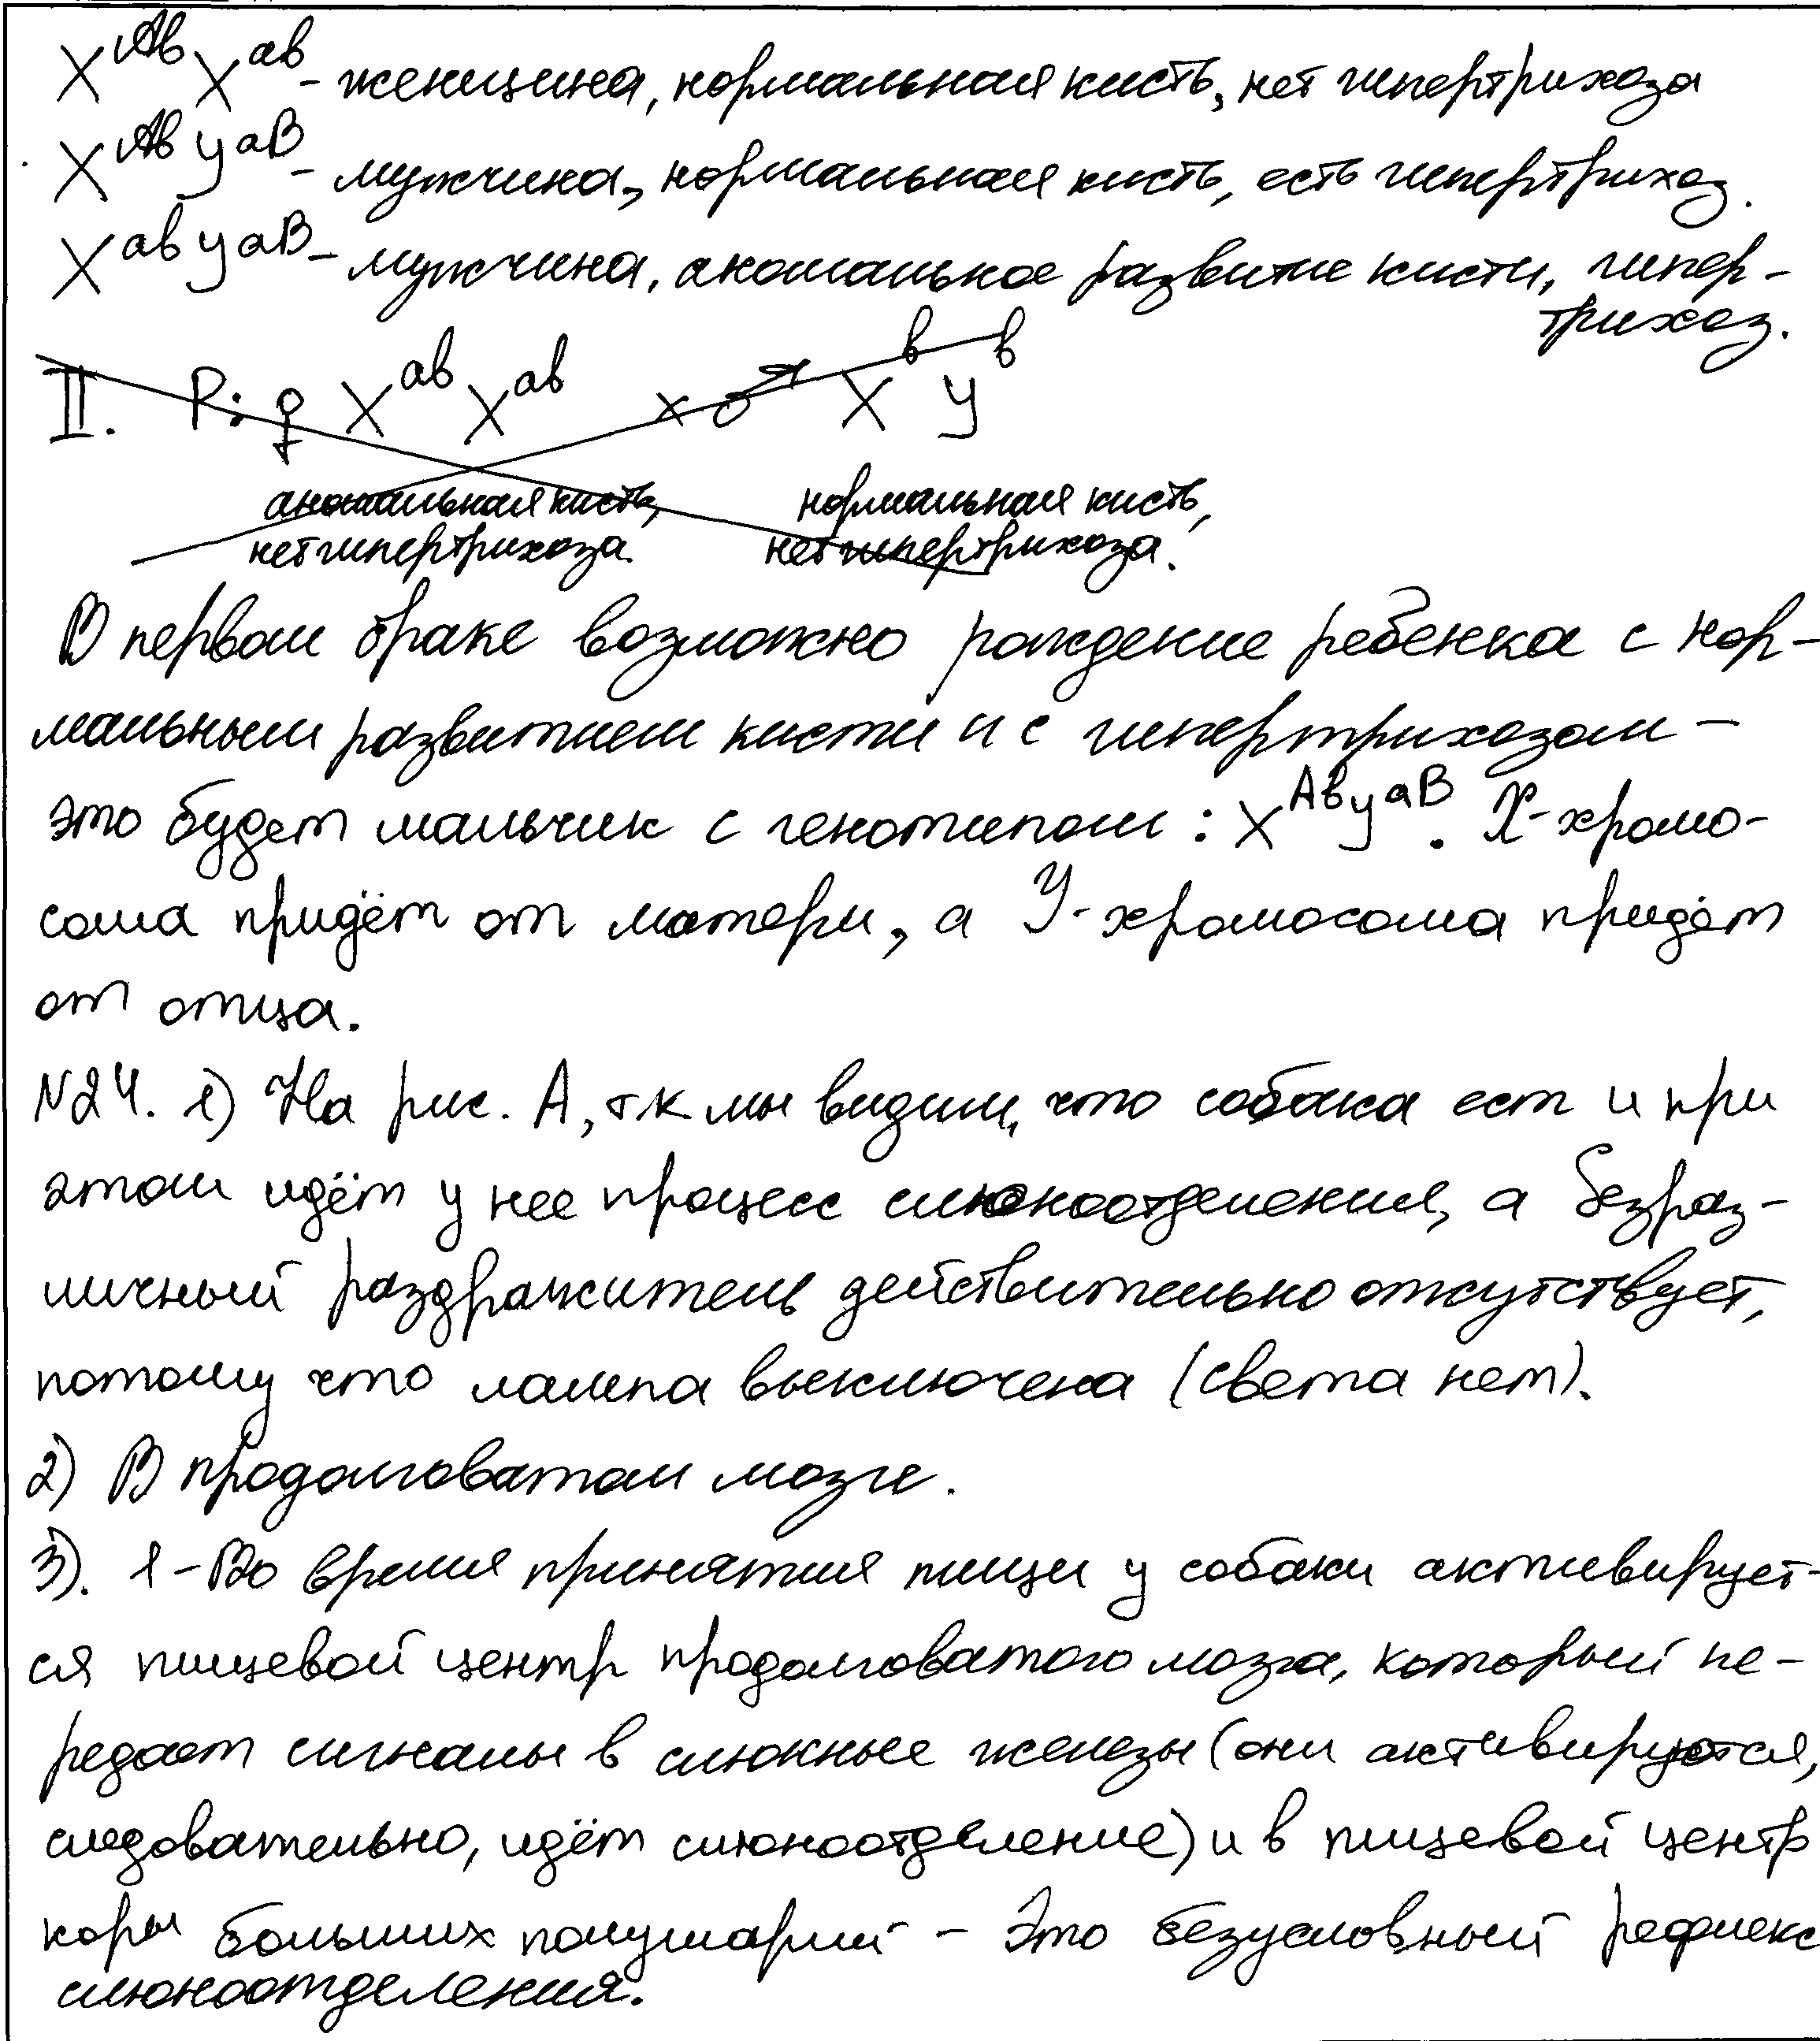 X^Ab X^ab - женщина, нормальная кисть, нет гипертрихоза
X^Ab y^aB - мужчина, нормальная кисть, есть гипертрихоз.
X^ab y^aB - мужчина, аномальное развитие кисти, гипер-
трихоз.
II. P: ♀ X^ab X^ab x ♂ X^в y^в
аномальная кисть, нормальная кисть,
нет гипертрихоза. нет гипертрихоза.
В первом браке возможно рождение ребенка с нор-
мальным развитием кисти и с гипертрихозом –
это будет мальчик с генотипом: X^Ab y^aB. X-хромо-
сома придёт от матери, а Y-хромосома придёт
от отца.
N24. 1) На рис. А, т.к мы видим, что собака ест и при
этом идёт у нее процесс слюноотделения, а безраз-
личный раздражитель действительно отсутствует,
потому что лампа выключена (света нет).
2) В продолговатом мозге.
3). 1 - Во время принятия пищи у собаки активирует-
ся пищевой центр продолговатого мозга, который пе-
редает сигналы в слюнные железы (они активируются,
следовательно, идёт слюноотделение) и в пищевой центр
коры больших полушарий - Это безусловный рефлекс
слюноотделения.